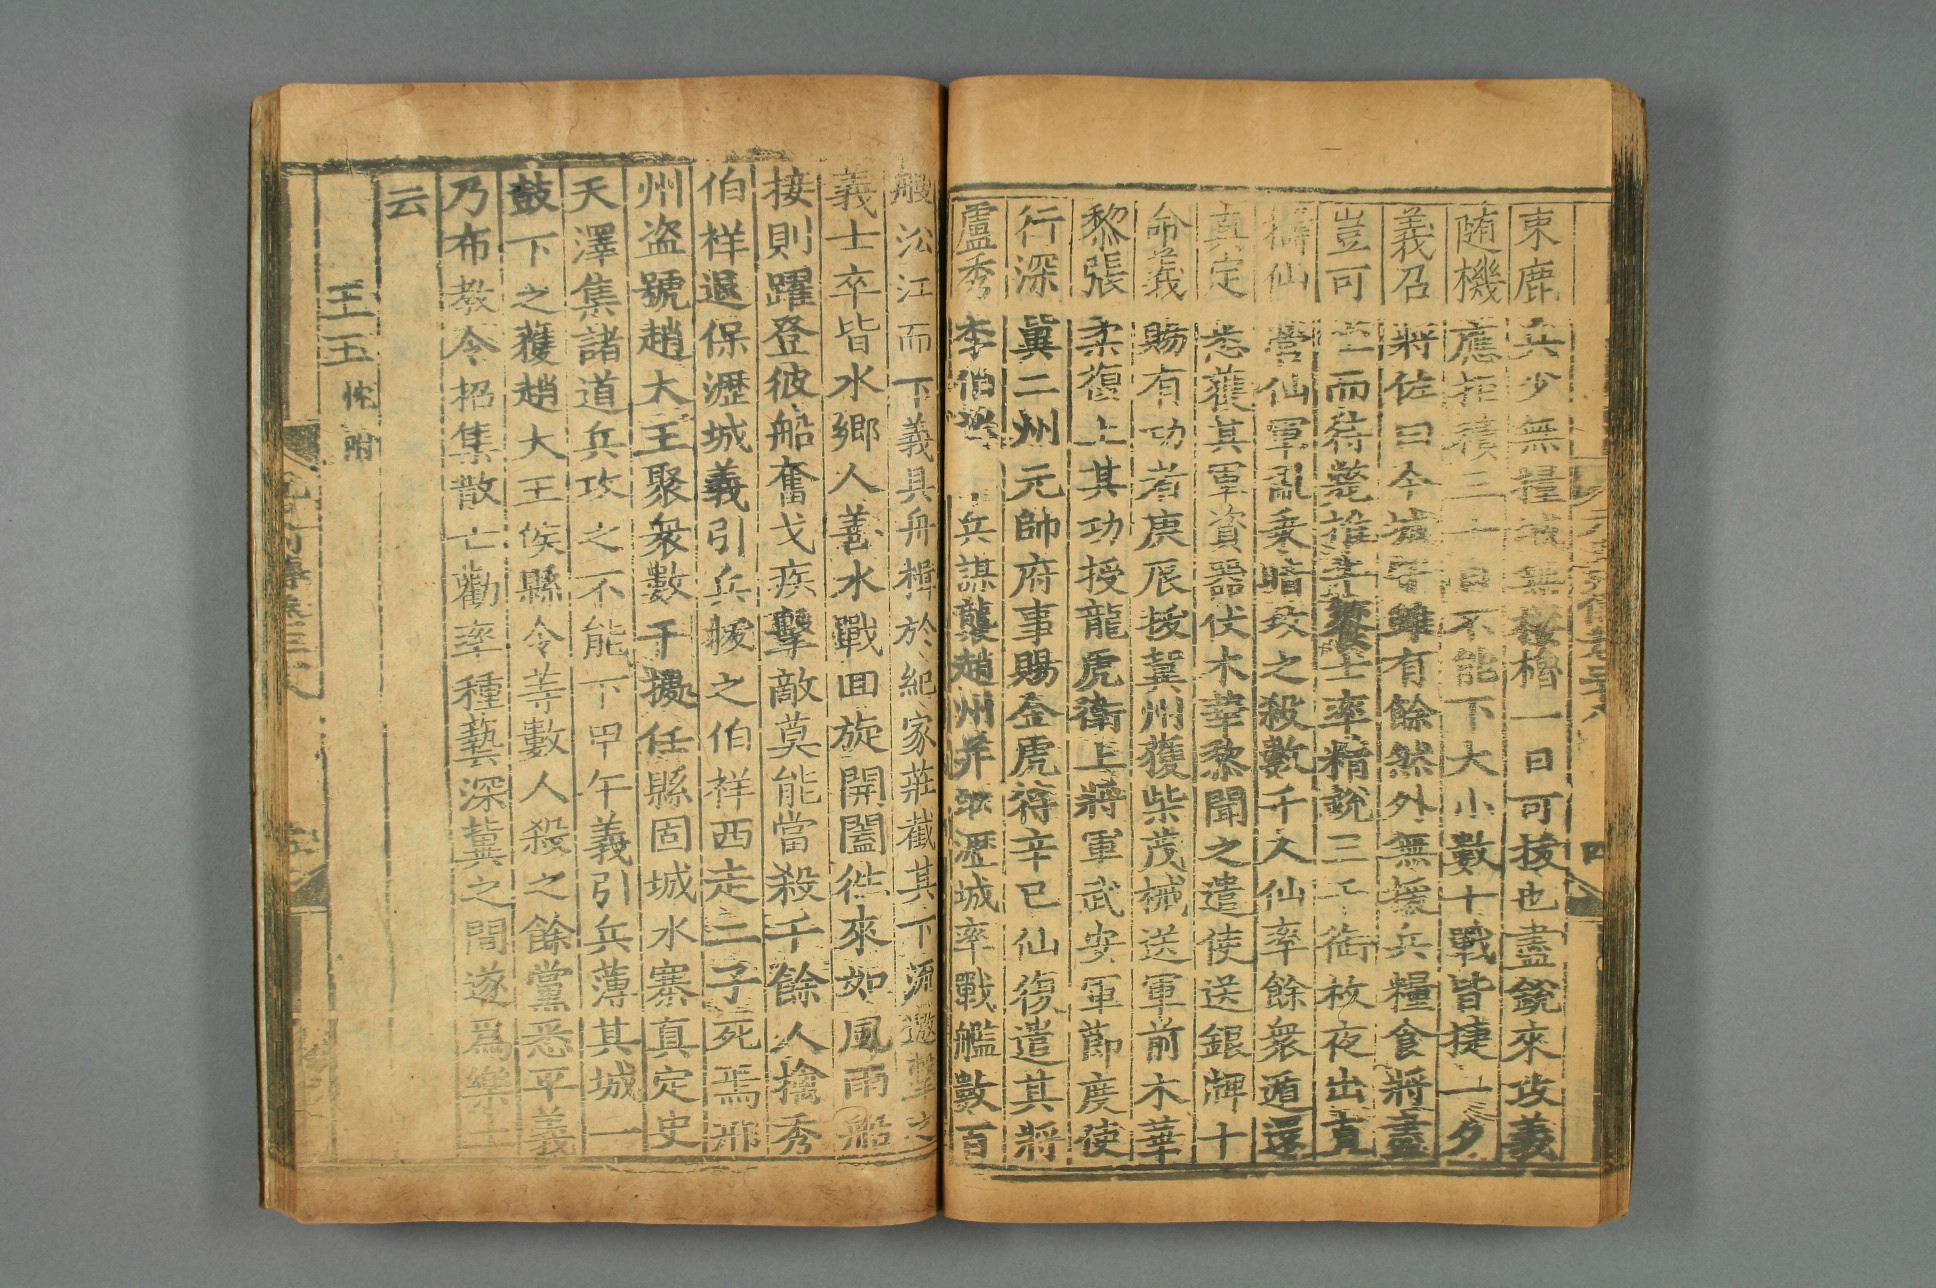 束鹿兵少無糧城無樓櫓一日可拔也盡銳來攻義
随機應拒積三十日不能下大小數十戰皆捷一夕
義召將佐曰今城守雖有餘然外無援兵糧食將盡
豈可坐而待斃椎牛饗士率精銳三千銜枚夜出直
擣仙營仙軍亂乗暗攻之殺數千人仙率餘衆遁還
真定悉獲其軍資器伏木華黎聞之遣使送銀牌十
命義賜有功者庚辰拔冀州獲柴茂械送軍前木華
黎張柔復上其功授龍虎衛上將軍武安軍節度使
行深冀二州元帥府事賜金虎符辛巳仙復遣其將
盧秀李伯祥 兵謀襲趙州并取瀝城率戰艦數百
艘沿江而下義具舟楫於紀家莊截其下流邀擊之
義士卒皆水鄉人善水戰回旋開闔徃來如風雨船
接則躍登彼船奮戈疾擊敵莫能當殺千餘人擒秀
伯祥退保瀝城義引兵拔之伯祥西走二子死焉邢
州盗號趙大王聚衆數千據任縣固城水寨真定史
天澤集諸道兵攻之不能下甲午義引兵薄其城一
鼓下之獲趙大王侯縣令等數人殺之餘黨悉平義
乃布教令招集散亡勸率種藝深冀之間遂爲樂土
云
王玉 忱附